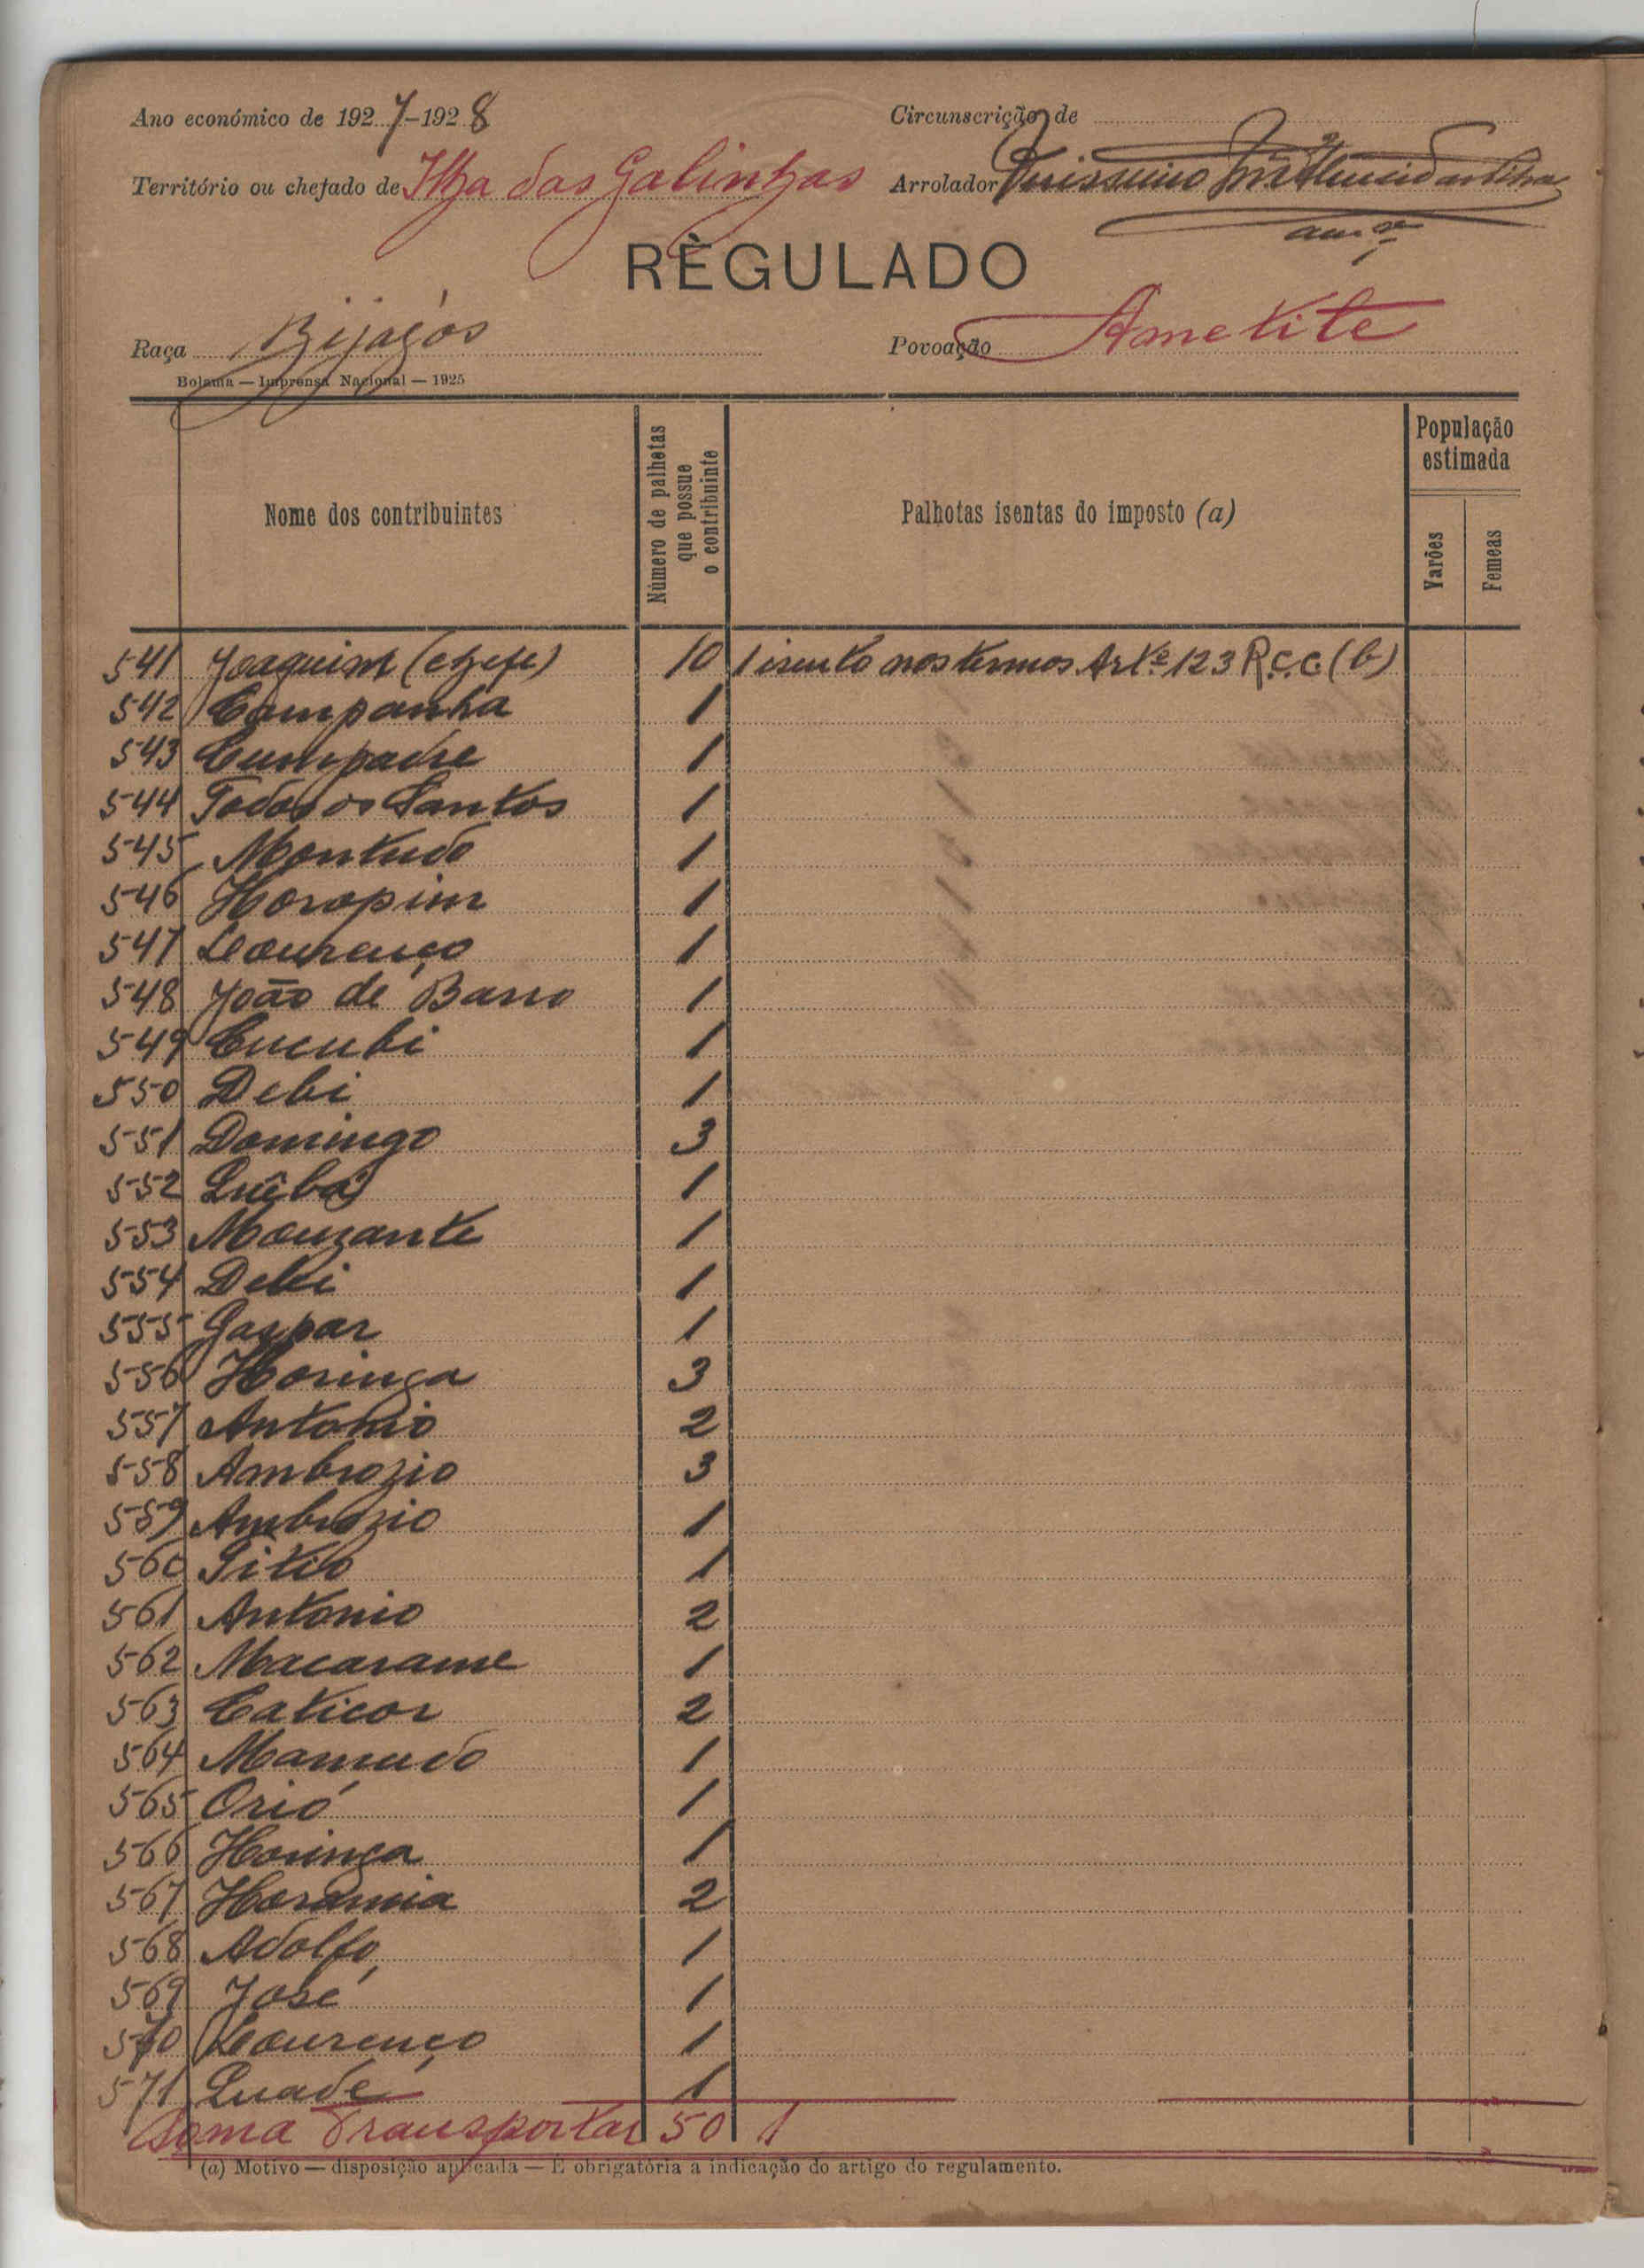 Ano económico de 1927-1928
Circunscrição de
Território ou chefado de Ilha das Galinhas
Arrolador Verissimo
RÈGULADO
Raça Bijagós
Povoação Ametite
Bolama — Imprensa Nacional — 1925
Nome dos contribuintes
Número de palhetas que possue o contribuinte
Palhotas isentas do imposto (a)
População estimada
Varões
Femeas
541 Joaquim (chefe) 10 1 isento nos termos Artº 123 R.C.C. (b)
542 Campanha 1
543 Cumpadre 1
544 Todos os Santos 1
545 Montudo 1
546 Horopim 1
547 Lourenço 1
548 João de Barro 1
549 Cucubi 1
550 Debi 1
551 Domingo 3
552 1
553 1
554 Debi 1
555 Gaspar 1
556 Horinga 3
557 Antonio 2
558 Ambrozio 3
559 Ambrozio 1
560 1
561 Antonio 2
562 Macarame 1
563 Caticor 2
564 Mamudo 1
565 Orió 1
566 Horinga 1
567 Horamia 2
568 Adolfo 1
569 José 1
570 Lourenço 1
571 Quadé 1
Soma Transportar 50 1
(a) Motivo — disposição aplicada — É obrigatória a indicação do artigo do regulamento.